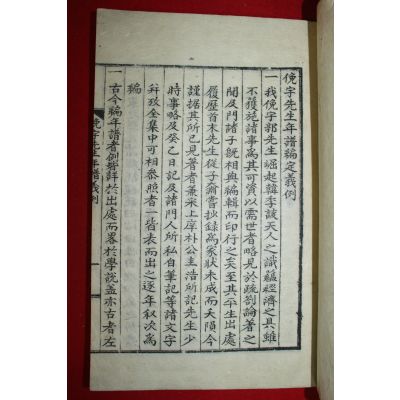 俛宇先生年譜編定義例
一我俛宇郭先生崛起韓季該天人之識蘊經濟之具雖
不獲施諸事爲其可資以需世者略於疏劄論著之
間及門諸子旣相與編輯而印行之矣至其平生出處
履歷首末先生從子嘗抄録爲家狀未成而夭隕今
謹据其所已見著者兼采上庠朴公圭浩所記先生少
時事略及癸乙日記及諸門人所私自筆記等諸文字
幷攷全集中可相參照者一皆表而出之逐年敍次爲
編
一古今編年譜者例皆詳於出處而畧於學說盖亦古者左
俛宇先生年譜義例